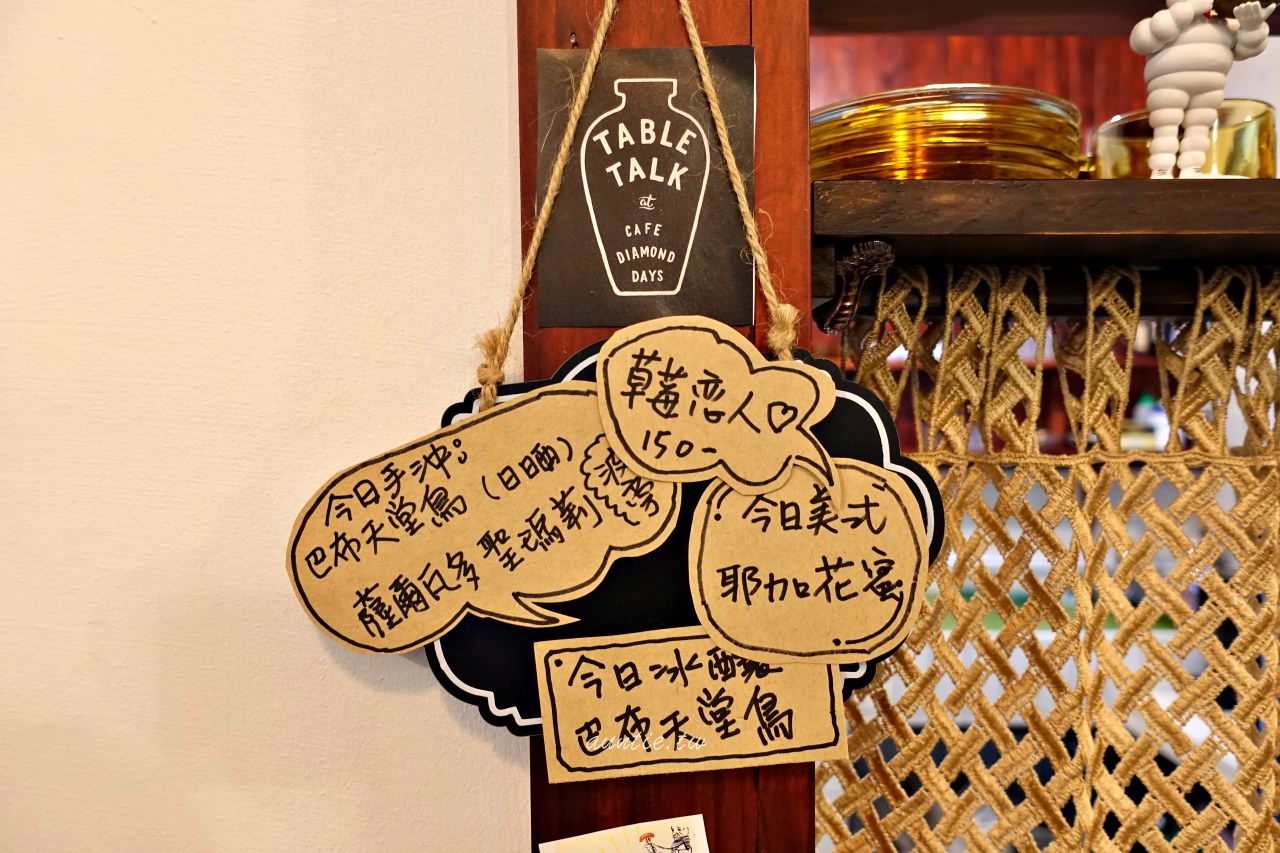 TABLE
TALK
at
CAFE
DIAMOND
DAYS
草莓恋人♡
150-
今日手沖:
巴布天堂鳥(日晒)
薩爾瓦多 聖瑪莉
今日美式
耶加花蜜
今日冰釀
巴布天堂鳥
auntie.tw